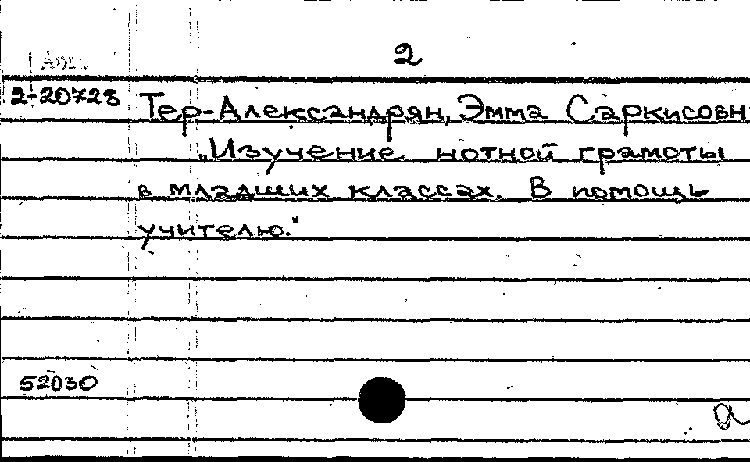 2
2-20728
Тер-Александрян, Эмма Саркисовн
„Изучение нотной грамоты
в младших классах. В помощь
учителю."
52030
а